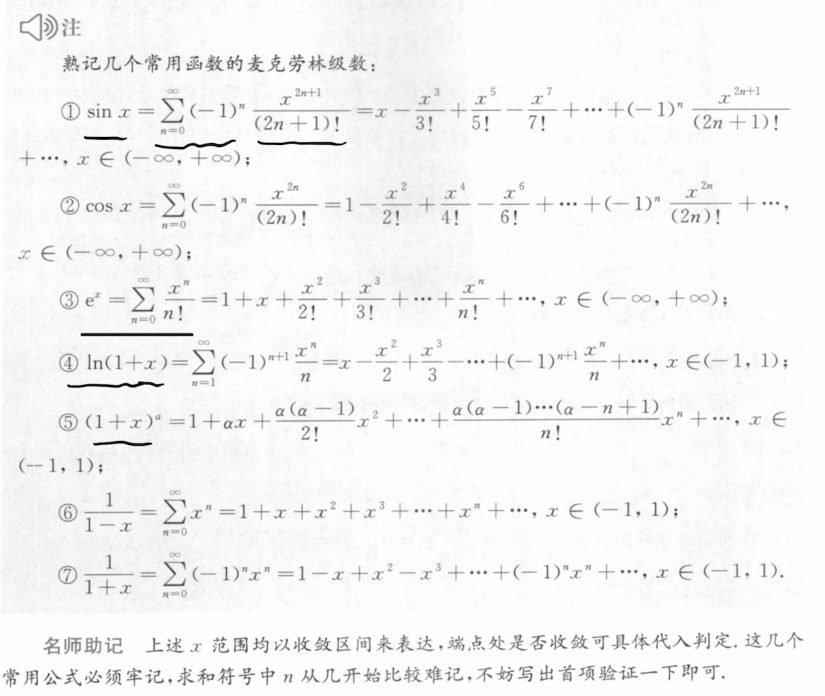 注
熟记几个常用函数的麦克劳林级数:
① sin x = ∑_{n=0}^{∞} (-1)^n x^{2n+1}/(2n+1)! = x - x^3/3! + x^5/5! - x^7/7! + ⋯ + (-1)^n x^{2n+1}/(2n+1)!
+ ⋯, x ∈ (-∞, +∞);
② cos x = ∑_{n=0}^{∞} (-1)^n x^{2n}/(2n)! = 1 - x^2/2! + x^4/4! - x^6/6! + ⋯ + (-1)^n x^{2n}/(2n)! + ⋯,
x ∈ (-∞, +∞);
③ e^x = ∑_{n=0}^{∞} x^n/n! = 1 + x + x^2/2! + x^3/3! + ⋯ + x^n/n! + ⋯, x ∈ (-∞, +∞);
④ ln(1+x) = ∑_{n=1}^{∞} (-1)^{n+1} x^n/n = x - x^2/2 + x^3/3 - ⋯ + (-1)^{n+1} x^n/n + ⋯, x ∈ (-1, 1);
⑤ (1+x)^α = 1 + αx + α(α-1)/2! x^2 + ⋯ + α(α-1)⋯(α-n+1)/n! x^n + ⋯, x ∈
(-1, 1);
⑥ 1/(1-x) = ∑_{n=0}^{∞} x^n = 1 + x + x^2 + x^3 + ⋯ + x^n + ⋯, x ∈ (-1, 1);
⑦ 1/(1+x) = ∑_{n=0}^{∞} (-1)^n x^n = 1 - x + x^2 - x^3 + ⋯ + (-1)^n x^n + ⋯, x ∈ (-1, 1).
名师助记 上述 x 范围均以收敛区间来表达,端点处是否收敛可具体代入判定.这几个
常用公式必须牢记,求和符号中 n 从几开始比较难记,不妨写出首项验证一下即可.